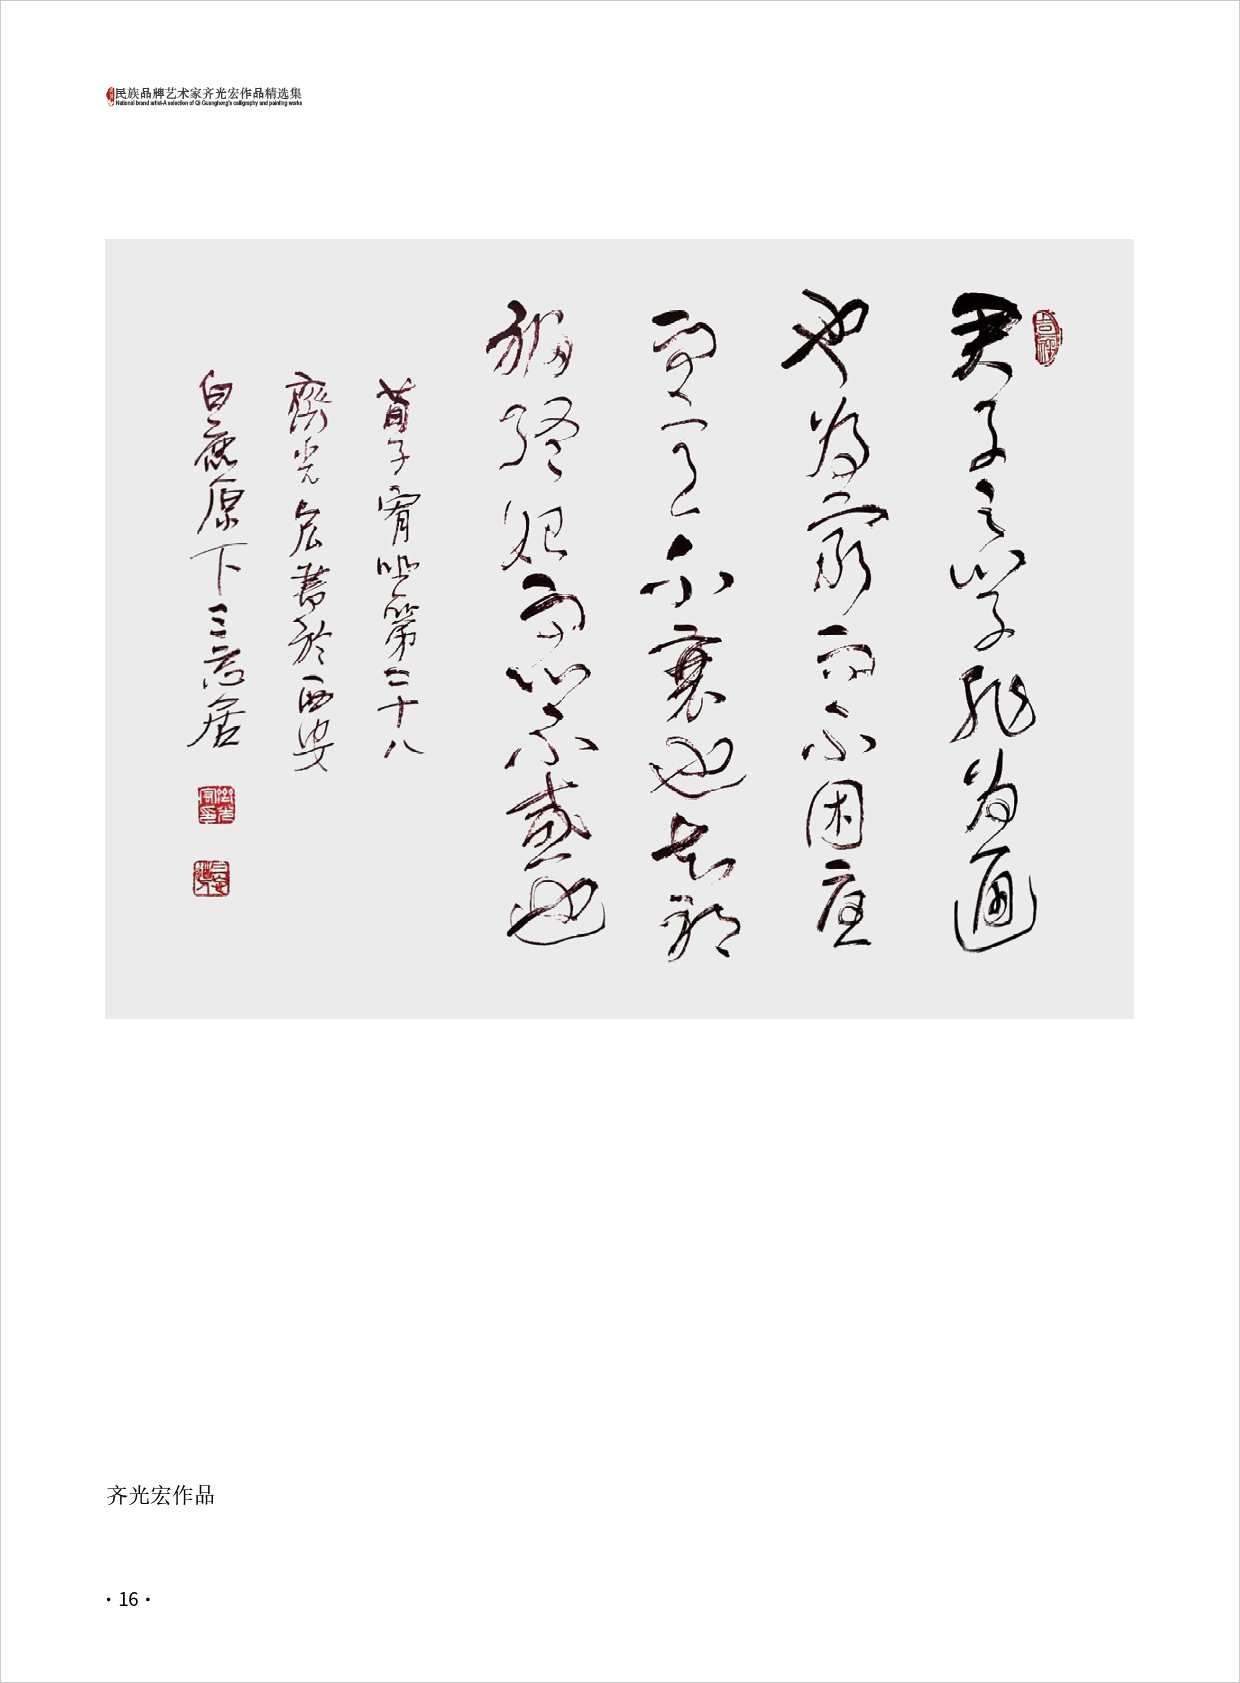 民族品牌艺术家齐光宏作品精选集
National brand artist-A selection of Qi Guanghong's calligraphy and painting works
吉祥
君子之學非為通
也為窮而不困憂
而意不衰也知禍
福終始而心不惑也
荀子宥坐第二十八
齊光宏書於西安
白鹿原下三居
齐光宏作品
·16·